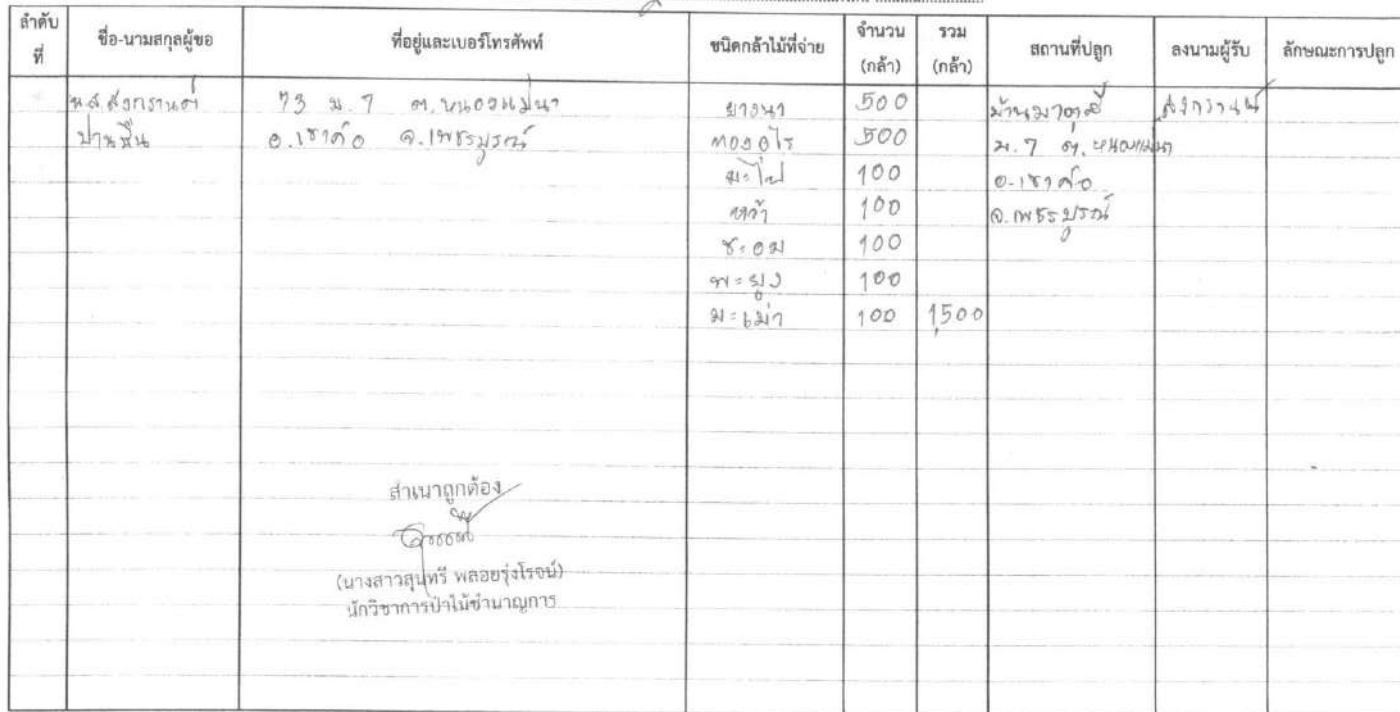 ลำดับที่ ชื่อ-นามสกุลผู้ขอ ที่อยู่และเบอร์โทรศัพท์ ชนิดกล้าไม้ที่จ่าย จำนวน (กล้า) รวม (กล้า) สถานที่ปลูก ลงนามผู้รับ ลักษณะการปลูก
น.ส.สงกรานต์ 73 ม.7 ต.หนองแม่นา ยางนา 500 สงกรานต์
ปานชื่น อ.เขาค้อ จ.เพชรบูรณ์ 500 ม.7 ต.หนองแม่นา
มะไฟ 100 อ.เขาค้อ
หว้า 100 จ.เพชรบูรณ์
ชะอม 100
พะยูง 100
มะเม่า 100 1,500
สำเนาถูกต้อง
(นางสาวสุนทรี พลอยรุ่งโรจน์)
นักวิชาการป่าไม้ชำนาญการ